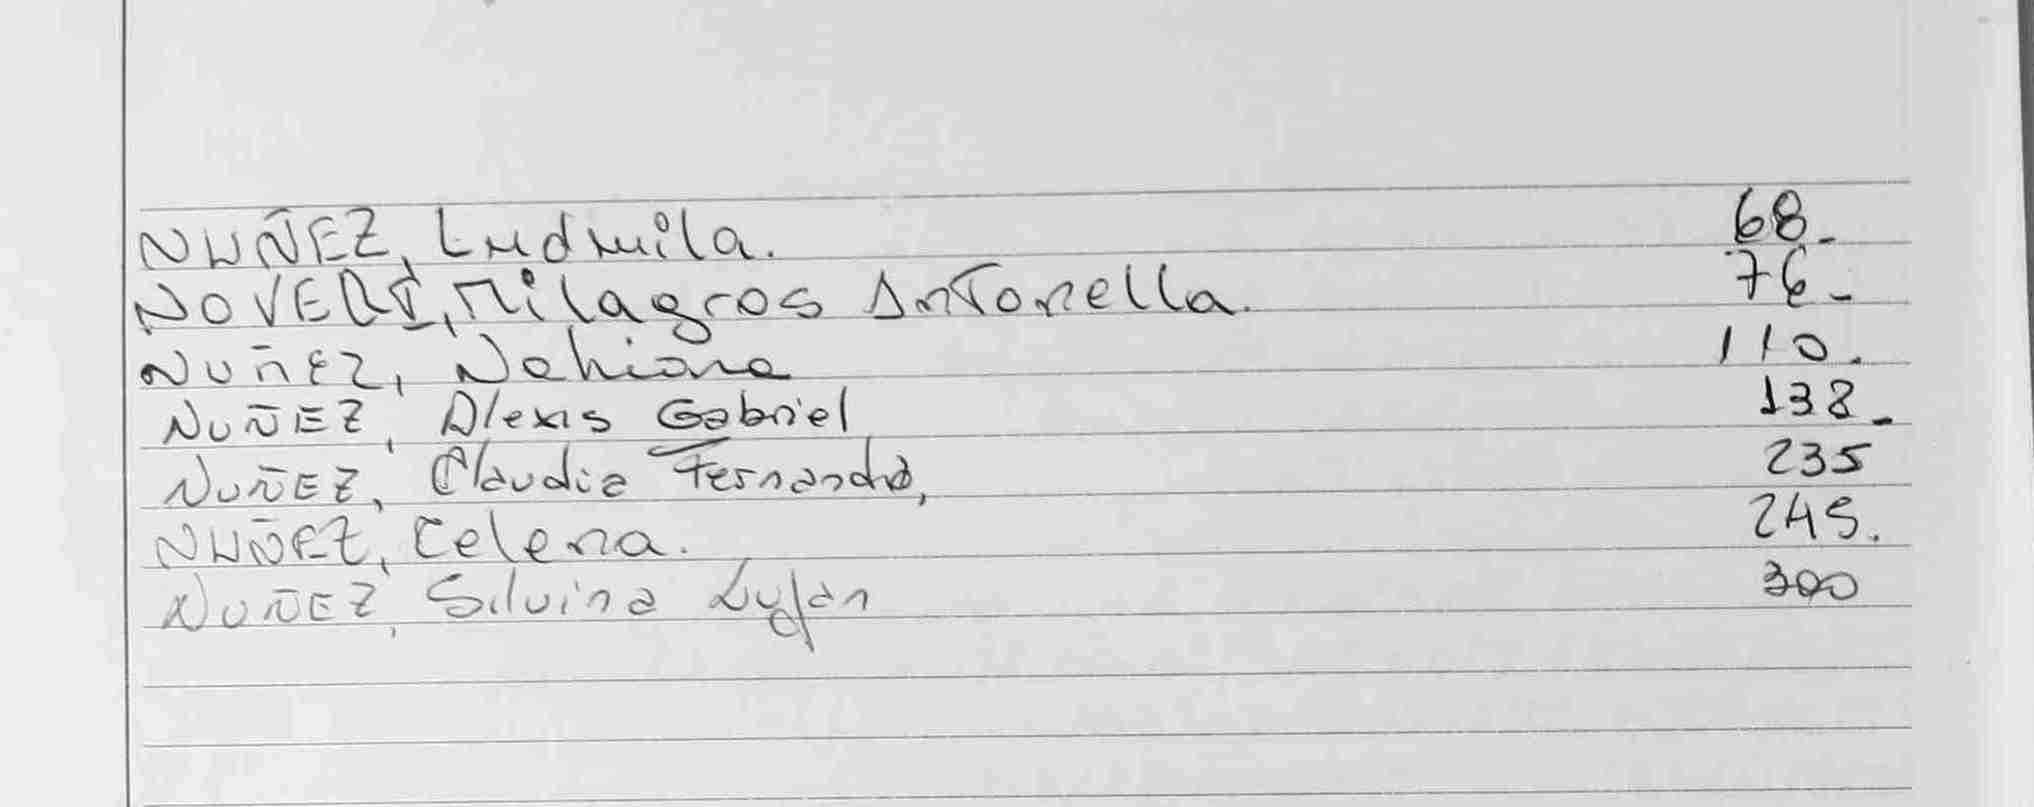 NUÑEZ, Ludmila. 68.-
NOVERI, Milagros Antonella. 76.-
Nuñez, Nahiara 110.
NUÑEZ, Alexis Gabriel 138.-
NUÑEZ, Claudia Fernanda, 235
NUÑEZ, Celena. 245.
NUÑEZ, Silvina Lujan 300